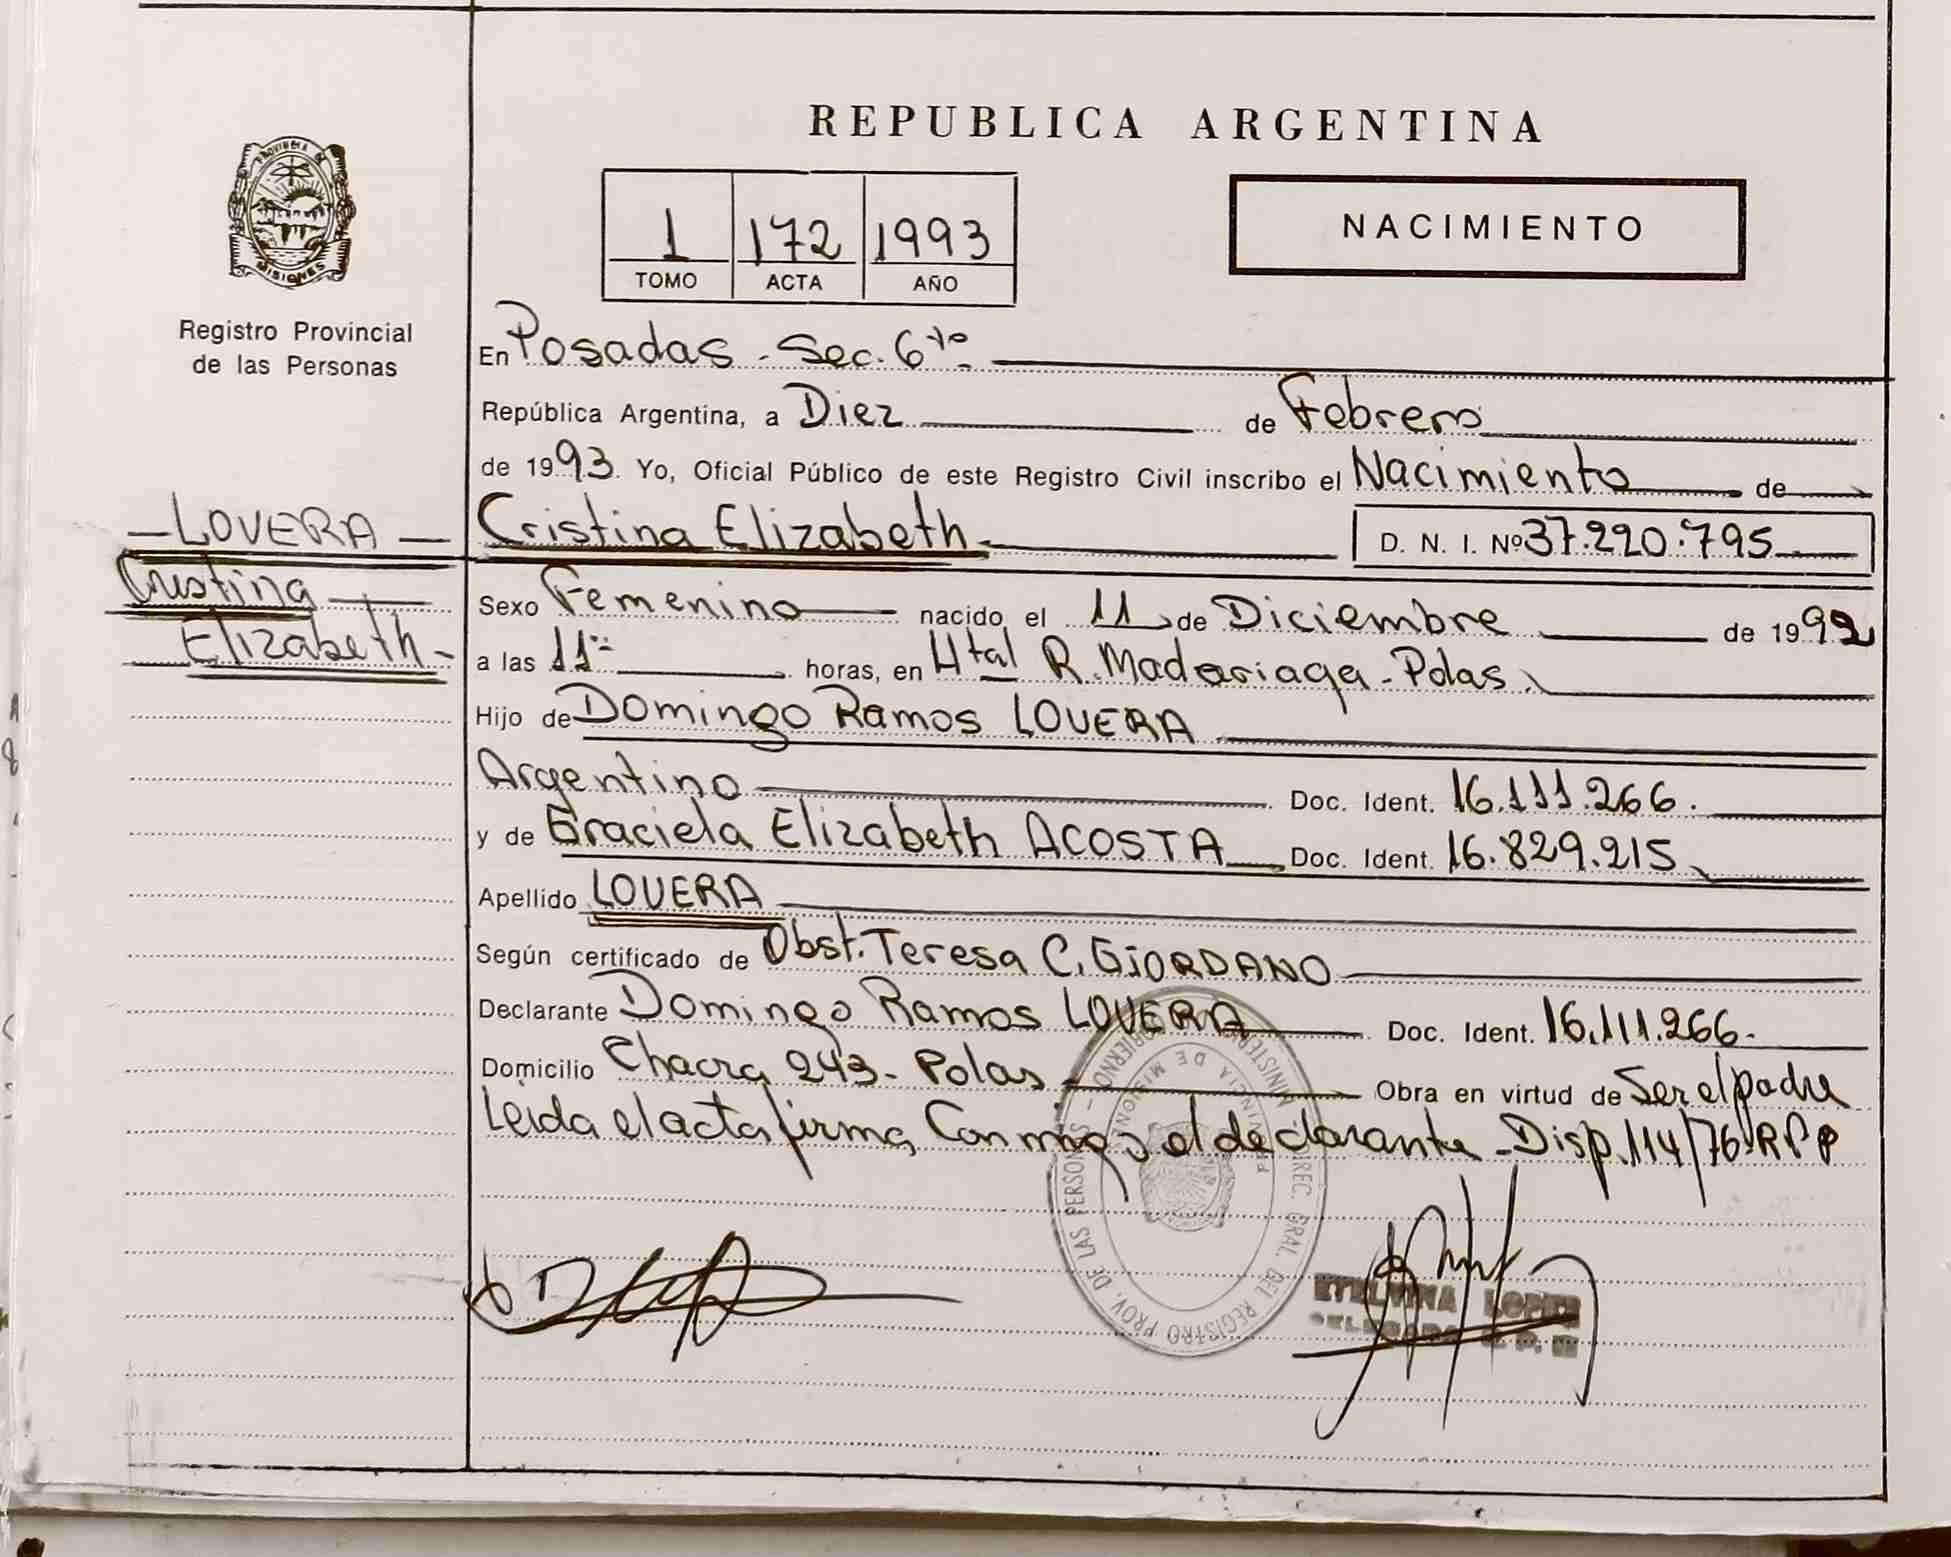 REPUBLICA ARGENTINA
PROVINCIA DE
MISIONES
Registro Provincial
de las Personas
1 172 1993
TOMO ACTA AÑO
NACIMIENTO
En Posadas - Sec. 6ta
República Argentina, a Diez de Febrero
de 1993. Yo, Oficial Público de este Registro Civil inscribo el Nacimiento de
LOVERA
Cristina
Elizabeth
Cristina Elizabeth D. N. I. Nº 37.220.795
Sexo Femenino nacido el 11 de Diciembre de 1992
a las 11 horas, en Htal R. Madariaga - Pdas.
Hijo de Domingo Ramos LOVERA
Argentino Doc. Ident. 16.111.266.
y de Graciela Elizabeth ACOSTA Doc. Ident. 16.829.215
Apellido LOVERA
Según certificado de Obst. Teresa C. GIORDANO
Declarante Domingo Ramos LOVERA Doc. Ident. 16.111.266.
Domicilio Chacra 243 - Pdas Obra en virtud de Ser el padre
Leida el acta firma Conmigo el declarante - Disp. 114/76 RPP
MINISTERIO GOBIERNO - DIREC. GRAL. DEL REGISTRO PROV. DE LAS PERSONAS
PROVINCIA DE MISIONES
ETELVINA LOPEZ